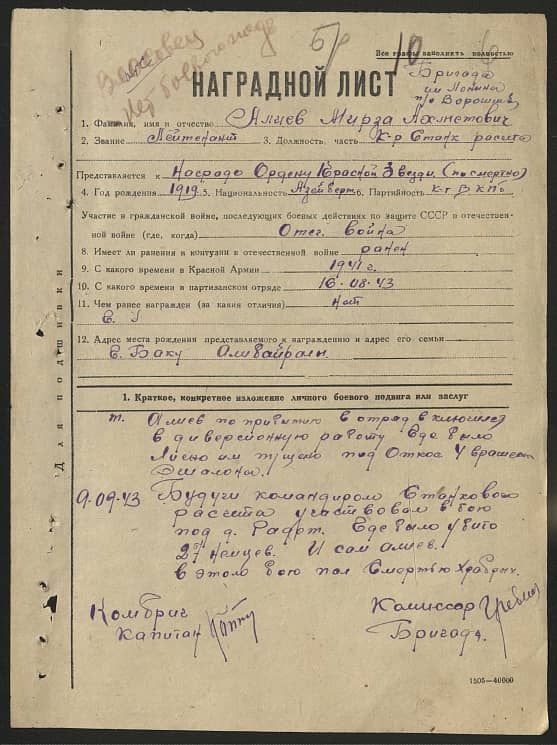 Власовец
Нет боевого
Бр 10 6
Все графы заполнять полностью
Бригада
им Ленина
п/о Ворошил
НАГРАДНОЙ ЛИСТ
1. Фамилия, имя и отчество Алиев Мирза Ахметович
2. Звание Лейтенант 3. Должность, часть к-р Станк расчета
Представляется к Награде Ордену Красной Звезды (посмертно)
4. Год рождения 1919 5. Национальность Азейберт 6. Партийность к-т ВКПб
Участие в гражданской войне, последующих боевых действиях по защите СССР в отечествен-
ной войне (где, когда) Отег. Война
8. Имеет ли ранения и контузии в отечественной войне ранен
9. С какого времени в Красной Армии 1941 г.
10. С какого времени в партизанском отряде 16-08-43
11. Чем ранее награжден (за какия отличия) нат
12. Адрес места рождения представляемого к награждению и адрес его семьи
г. Баку
Для подшивки
1. Краткое, конкретное изложение личного боевого подвига или заслуг
т. Алиев по прибытию в отряд включился
в диверсионную работу Где было
Лисью им пущено под Откос 4 врашеск
Эшалона.
9.09.43 Будуги командиром Станкового
расчета участвовал в бою
под д. Где было убито
27 немцев. И сам алиев.
в этом бою пал Смертью Храбрых.
Комбриг
Капитан
Комиссар
Бригады.
1505—40000